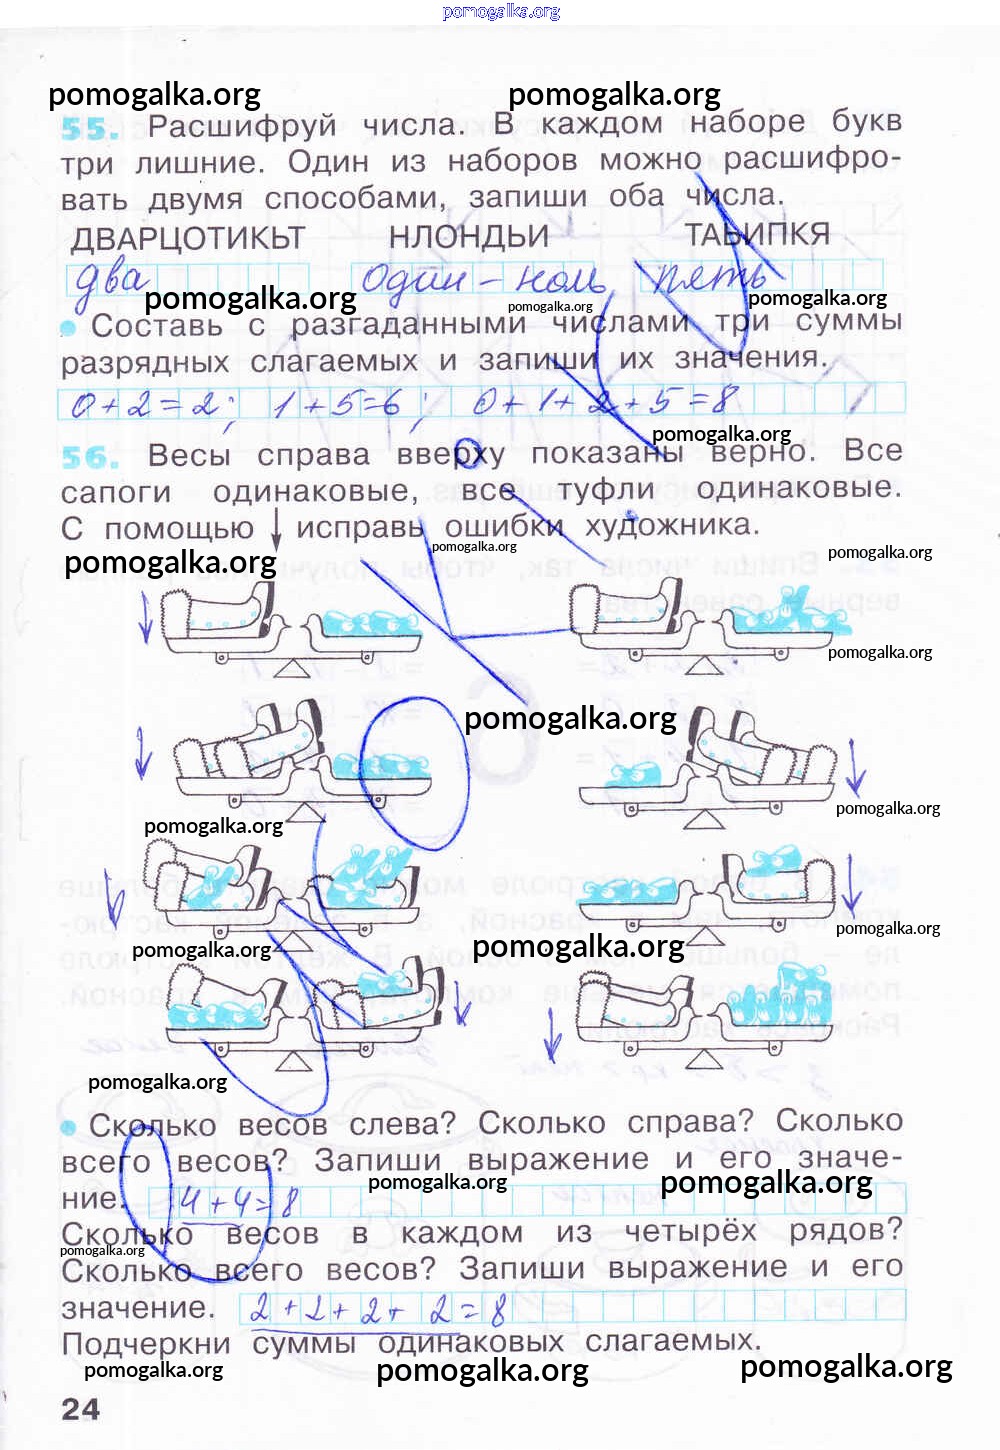 pomogalka.org
pomogalka.org pomogalka.org
55. Расшифруй числа. В каждом наборе букв
три лишние. Один из наборов можно расшифро-
вать двумя способами, запиши оба числа.
ДВАРЦОТИКЬТ НЛОНДЬИ ТАЬИПКЯ
два один – ноль пять
pomogalka.org pomogalka.org pomogalka.org
Составь с разгаданными числами три суммы
разрядных слагаемых и запиши их значения.
0+2=2; 1+5=6; 0+1+2+5=8
pomogalka.org
56. Весы справа вверху показаны верно. Все
сапоги одинаковые, все туфли одинаковые.
С помощью ↓ исправь ошибки художника.
pomogalka.org pomogalka.org pomogalka.org
pomogalka.org
pomogalka.org
pomogalka.org pomogalka.org
pomogalka.org pomogalka.org pomogalka.org
pomogalka.org
Сколько весов слева? Сколько справа? Сколько
всего весов? Запиши выражение и его значе-
ние. 4+4=8
pomogalka.org pomogalka.org
Сколько весов в каждом из четырёх рядов?
pomogalka.org
Сколько всего весов? Запиши выражение и его
значение. 2+2+2+2=8
Подчеркни суммы одинаковых слагаемых.
pomogalka.org pomogalka.org pomogalka.org
24